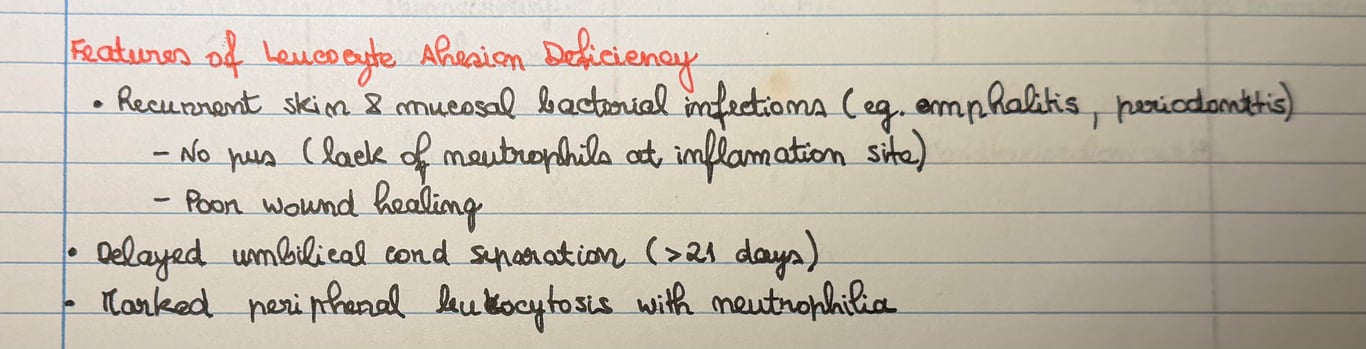 Features of Leucocyte Ahesion Deficiency
• Recurrent skin & mucosal bacterial infections (eg. omphalitis, periodontitis)
- No pus (lack of neutrophils at inflamation site)
- Poor wound healing
• Delayed umbilical cord separation (>21 days)
• Marked peripheral leukocytosis with neutrophilia